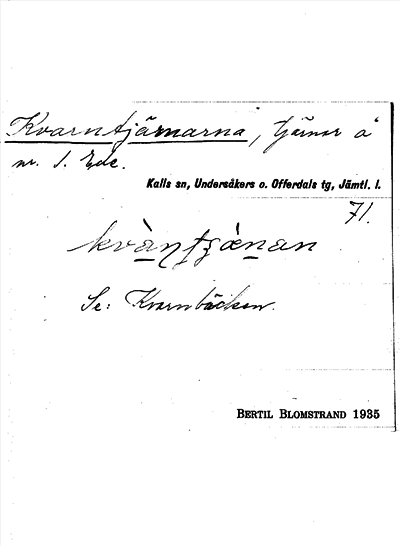 Kvarntjärnarna, tjärnar å
nr. 1. Ede.
Kalls sn, Undersåkers o. Offerdals tg, Jämtl. l.
71.
kvàn̠tʒæ̀n̠an
Se: Kvarnbäcken.
BERTIL BLOMSTRAND 1935